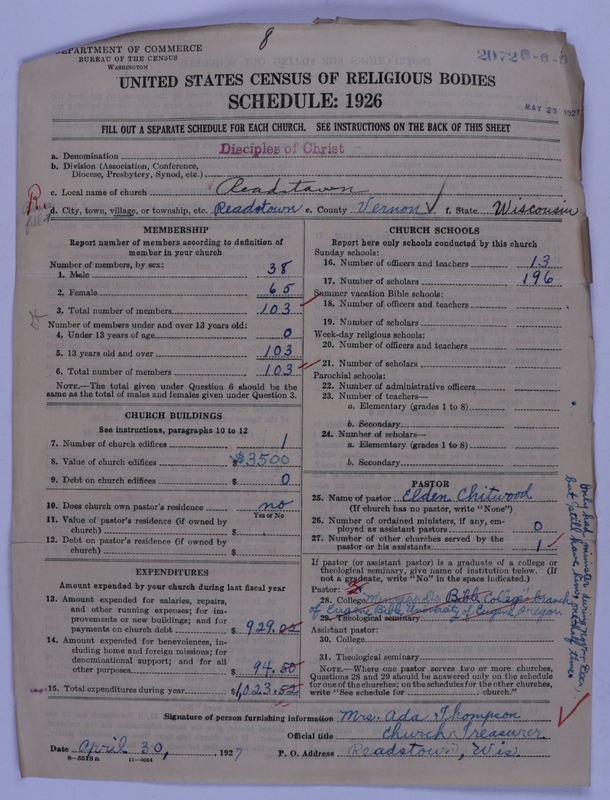 8
DEPARTMENT OF COMMERCE
BUREAU OF THE CENSUS
WASHINGTON
UNITED STATES CENSUS OF RELIGIOUS BODIES
SCHEDULE: 1926
MAY 23 1927
FILL OUT A SEPARATE SCHEDULE FOR EACH CHURCH. SEE INSTRUCTIONS ON THE BACK OF THIS SHEET
a. Denomination Disciples of Christ
b. Division (Association, Conference,
Diocese, Presbytery, Synod, etc.)
c. Local name of church Readstown
d. City, town, village, or township, etc. Readstown e. County Vernon f. State Wisconsin
MEMBERSHIP
Report number of members according to definition of
member in your church
Number of members, by sex:
1. Male 38
2. Female 65
3. Total number of members 103
Number of members under and over 13 years old:
4. Under 13 years of age 0
5. 13 years old and over 103
6. Total number of members 103
NOTE.—The total given under Question 6 should be
same as the total of males and females given under Question 3.
CHURCH BUILDINGS
See instructions, paragraphs 10 to 12
7. Number of church edifices 1
8. Value of church edifices $3500
9. Debt on church edifices $ 0
10. Does church own pastor's residence no
Yes or No
11. Value of pastor's residence (if owned by
church) $
12. Debt on pastor's residence (if owned by
church) $
EXPENDITURES
Amount expended by your church during last fiscal year
13. Amount expended for salaries, repairs,
and other running expenses; for im-
provements or new buildings; and for
payments on church debt $ 929.02
14. Amount expended for benevolences, in-
cluding home and foreign missions; for
denominational support; and for all
other purposes $ 94.50
15. Total expenditures during year $1,023.52
CHURCH SCHOOLS
Report here only schools conducted by this church
Sunday schools:
16. Number of officers and teachers 13
17. Number of scholars 196
Summer vacation Bible schools:
18. Number of officers and teachers
19. Number of scholars
Week-day religious schools:
20. Number of officers and teachers
21. Number of scholars
Parochial schools:
22. Number of administrative officers
23. Number of teachers—
a. Elementary (grades 1 to 8)
b. Secondary
24. Number of scholars—
a. Elementary (grades 1 to 8)
b. Secondary
PASTOR
25. Name of pastor Elden Chitwood
(If church has no pastor, write "None")
26. Number of ordained ministers, if any, em-
ployed as assistant pastors 0
27. Number of other churches served by the
pastor or his assistants 1
If pastor (or assistant pastor) is a graduate of a college or
theological seminary, give name of institution below. (If
not a graduate, write "No" in the space indicated.)
Pastor:
28. College Minneapolis Bible College branch
of Eugene Bible University of Eugene Oregon
29. Theological seminary
Assistant pastor:
30. College
31. Theological seminary
NOTE.—Where one pastor serves two or more churches,
Questions 28 and 29 should be answered only on the schedule
for one of the churches; on the schedules for the other churches,
write "See schedule for church."
only had minister during Sept - Dec.,
but still have him part of time
Signature of person furnishing information Mrs. Ada Thompson
Official title Church Treasurer
Date April 30, 1927 P. O. Address Readstown, Wis.
8-5518a 11-9084